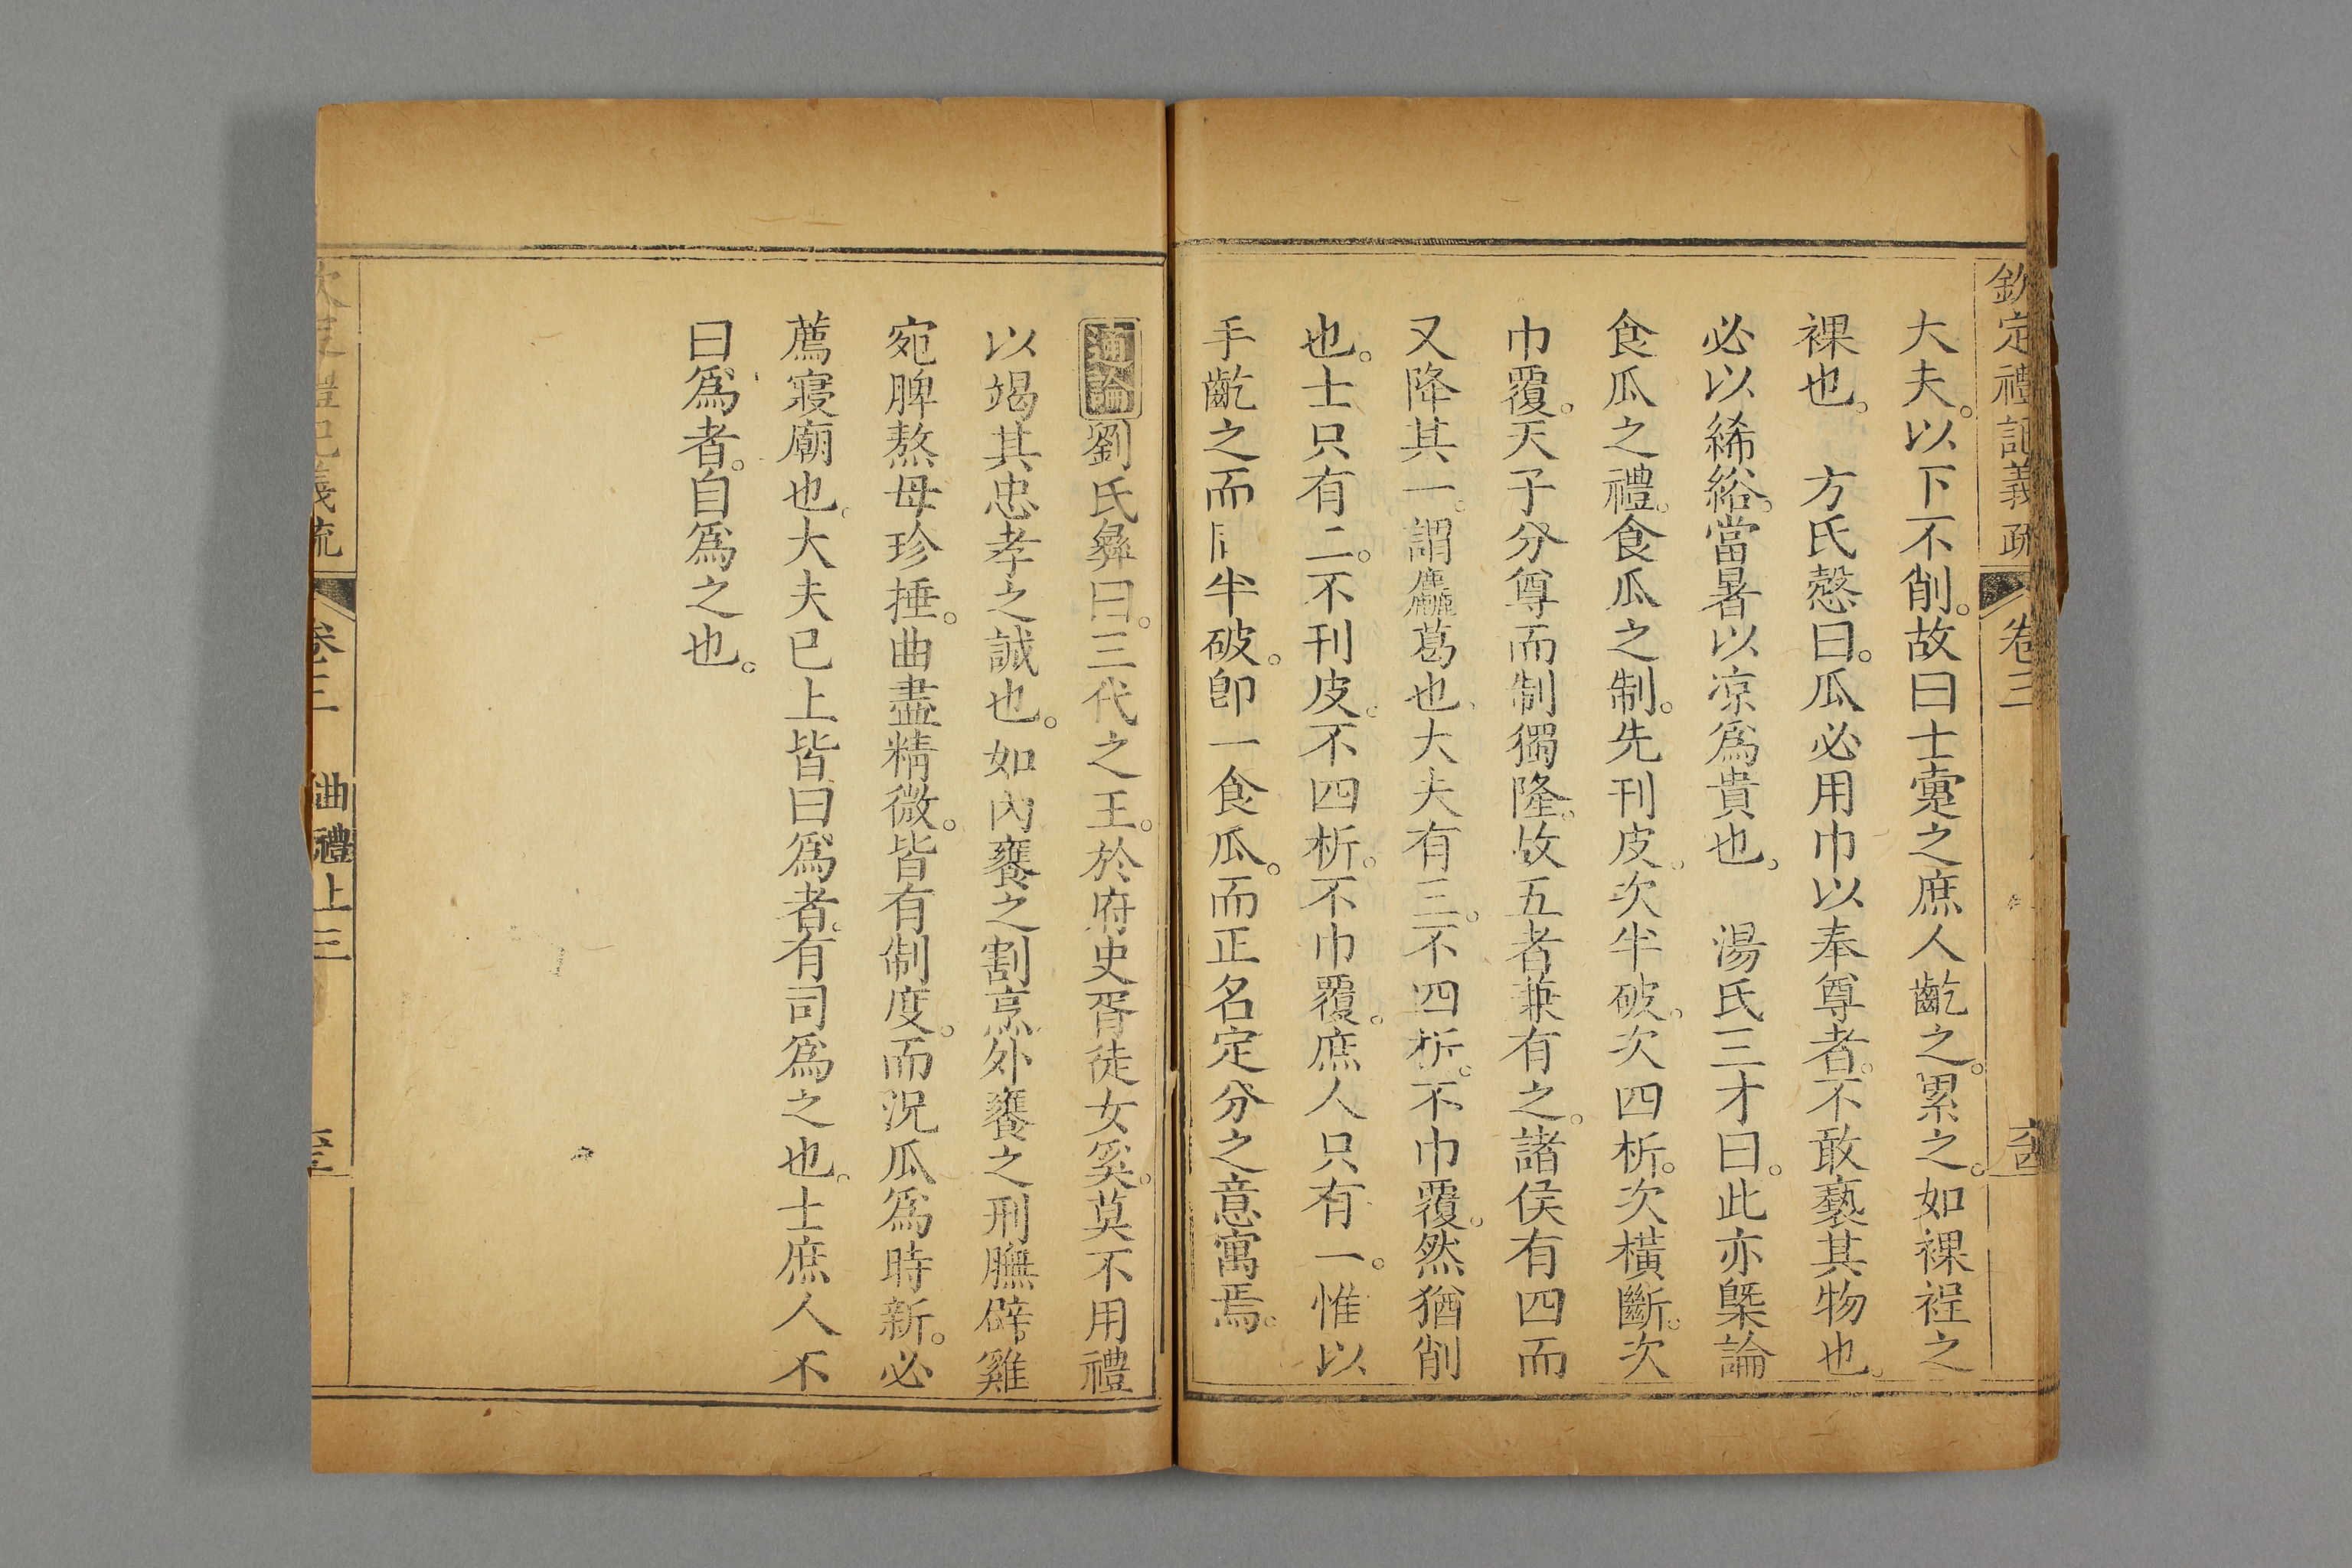 欽定禮記義疏 卷三
大夫。以下不削。故曰士疐之庶人齕之。累之。如裸裎之
裸也。 方氏慤曰。瓜必用巾以奉尊者。不敢褻其物也。
必以絺綌。當暑以凉爲貴也。 湯氏三才曰。此亦槩論
食瓜之禮。食瓜之制。先刊皮。次半破。次四析。次橫斷。次
巾覆。天子分尊而制獨隆。故五者兼有之。諸侯有四而
又降其一。謂麤葛也、大夫有三。不四析。不巾覆。然猶削
也。士只有二。不刊皮。不四析。不巾覆。庶人只有一。惟以
手齕之而同半破。卽一食瓜。而正名定分之意寓焉。
通論劉氏彝曰。三代之王。於府史胥徒女奚。莫不用禮
以竭其忠孝之誠也。如內饔之割烹外饔之刑膴辟。雞
宛脾熬母珍捶。曲盡精微。皆有制度。而況瓜爲時新。必
薦寢廟也。大夫已上皆曰爲者。有司爲之也。士庶人不
曰爲者。自爲之也。
義疏 卷三 曲禮上三